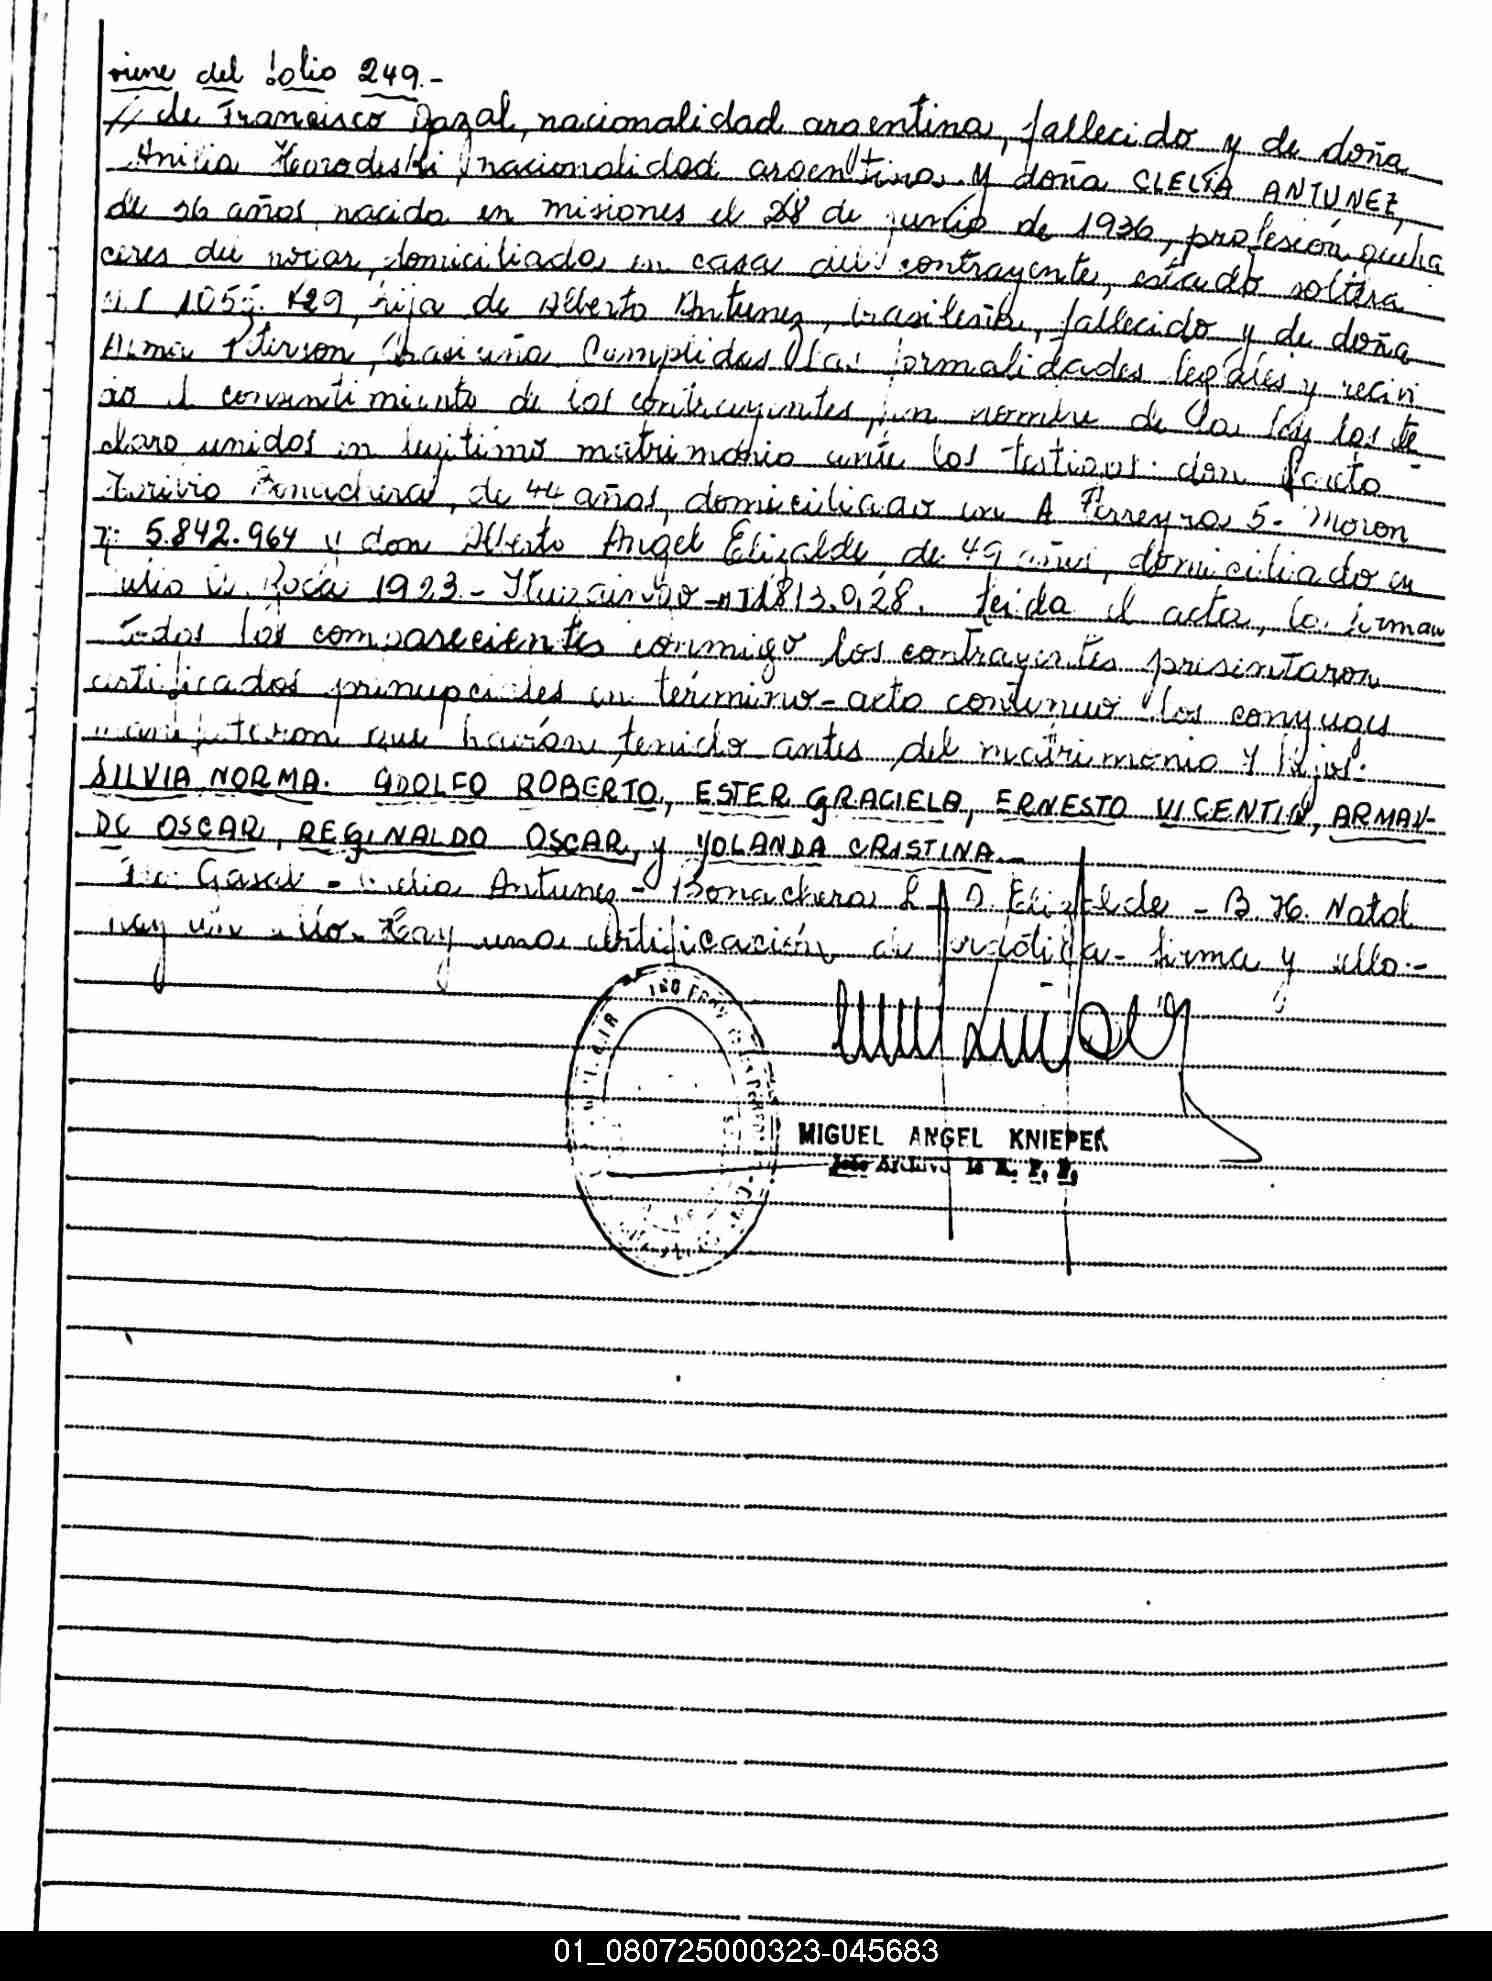 viene del folio 249.-
// de Francisco nacionalidad argentina, fallecido y de doña
nacionalidad argentina y doña CLELIA ANTUNEZ,
de 36 años, nacida en misiones el 28 de junio de 1936, profesión queha
ceres del hogar, domiciliada en casa del contrayente, estado soltera
hija de Alberto Antunez, brasileña, fallecido y de doña
Cumplidas las formalidades legales y recivi
do el consentimiento de los contrayentes, en nombre de la ley los de
claro unidos en legitimo matrimonio ante los testigos: don
Bonachera, de 44 años, domiciliado en A Ferreyra 5- Moron
5.842.964 y don Alberto Angel Elizalde de 49 años, domiciliado en
Julio A. Roca 1923 - Ituzaingo - leida el acta, la firman
todos los comparecientes conmigo los contrayentes presentaron
certificados prenupciales en término - acto continuo los conyuges
manifestaron que habían tenido antes del matrimonio 7 hijos:
SILVIA NORMA. ADOLFO ROBERTO, ESTER GRACIELA, ERNESTO VICENTIN, ARMAN-
DO OSCAR, REGINALDO OSCAR, y YOLANDA CRISTINA.-
Antunez - Bonachera L - A. Elizalde - B. H. Natal
hay un sello. Hay una certificación de firma y sello.-
MIGUEL ANGEL KNIEPER
Jefe Archivo
01_080725000323-045683